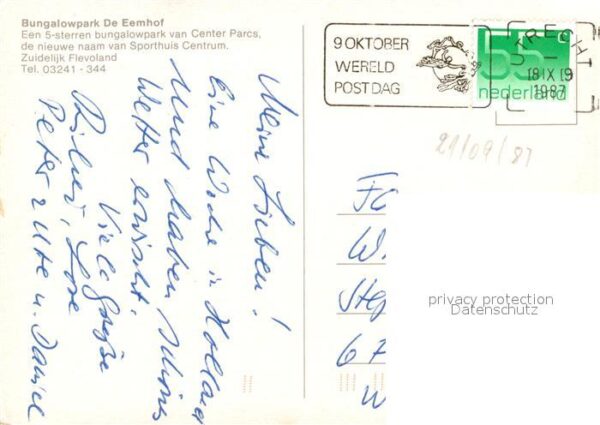 Bungalowpark De Eemhof
Een 5-sterren bungalowpark van Center Parcs,
de nieuwe naam van Sporthuis Centrum.
Zuidelijk Flevoland
Tel. 03241 - 344
9 OKTOBER
WERELD
POSTDAG
UTRECHT
18 IX 19
1987
55 c
nederland
21/09/87
Meine Lieben!
Eine Woche in Holland
und haben schönes
Wetter erwischt.
Viele Grüße
Lore
Peter, Ute u. Daniel
W.
Ste
67
W
privacy protection
Datenschutz